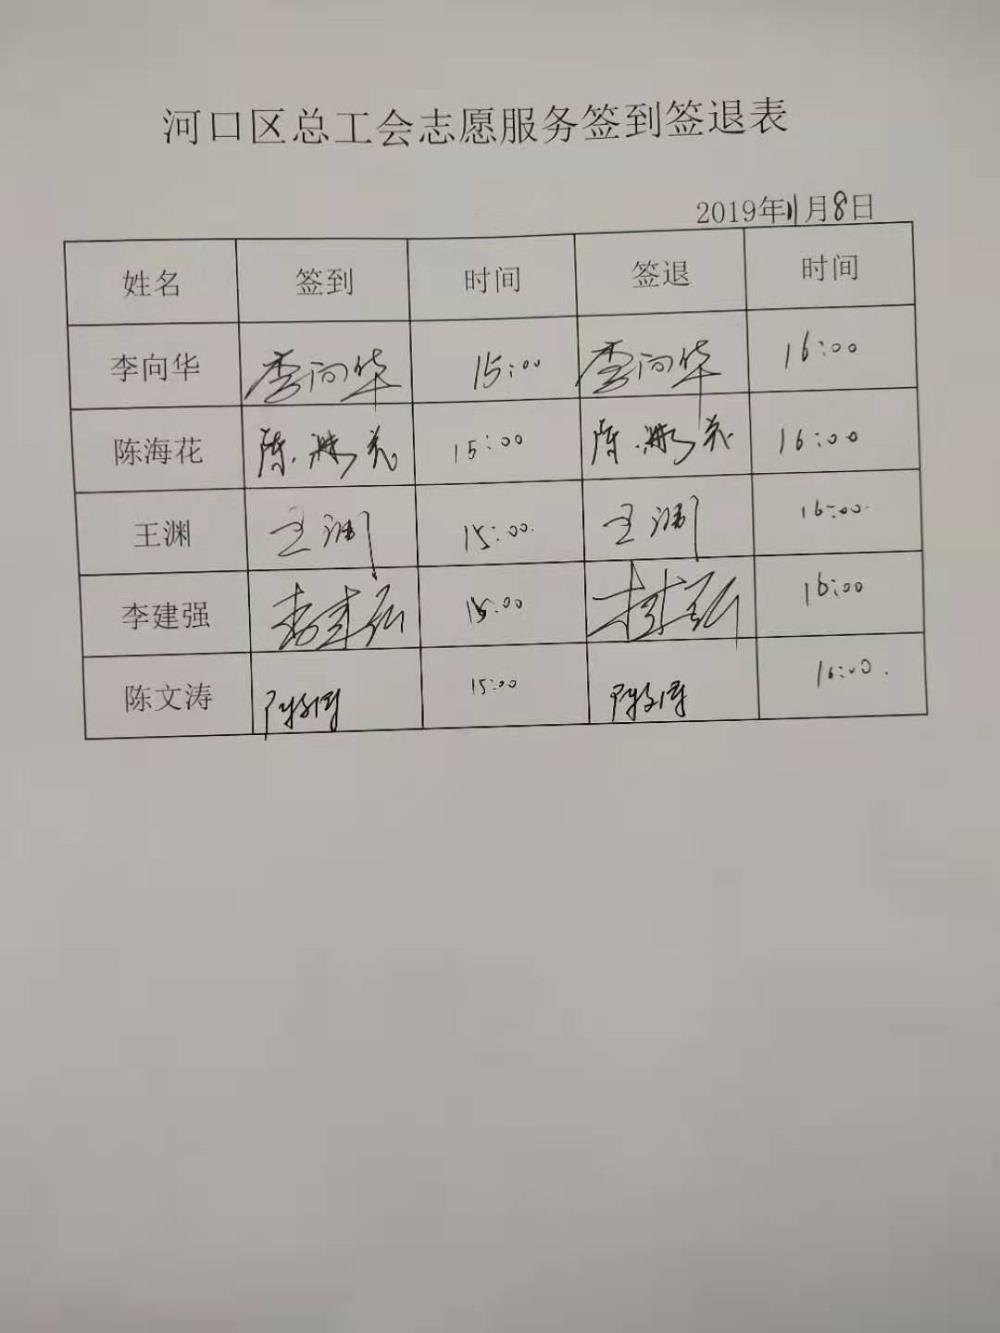 河口区总工会志愿服务签到签退表
2019年11月8日
姓名 签到 时间 签退 时间
李向华 李向华 15:00 李向华 16:00
陈海花 陈海花 15:00 陈海花 16:00
王渊 王渊 15:00. 王渊 16:00.
李建强 李建强 15:00 李建强 16:00
陈文涛 陈文涛 15:00 陈文涛 16:00.